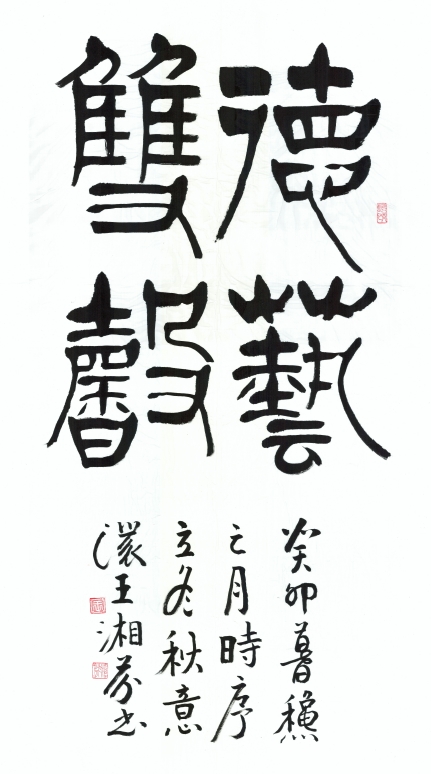 德藝
雙馨
癸卯暮穐
之月時序
立冬秋意
濃王湘芬书